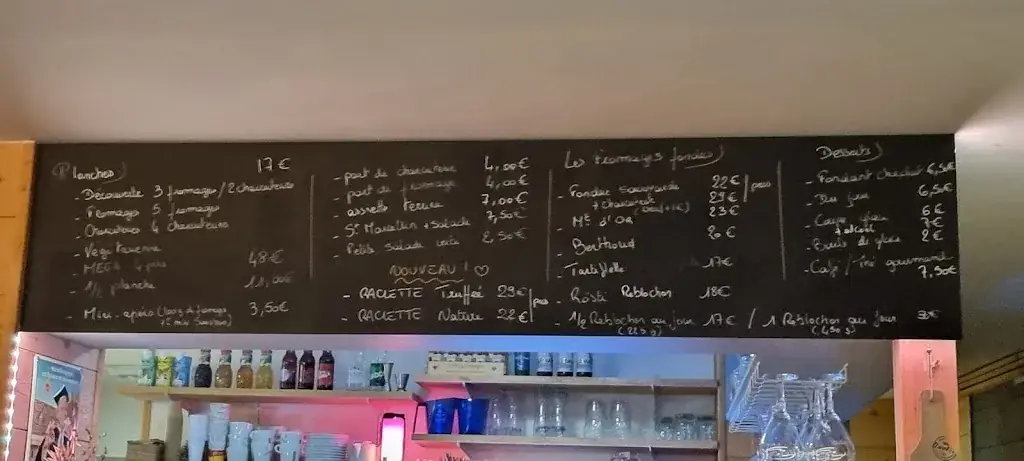 Planches 17€
- Découverte 3 fromages / 2 charcuteries
- Fromages 5 fromages
- Charcuteries 4 charcuteries
- Végé
- MEGA 4 pers 48€
- 1/2 planche
- Mini-apéro 3,50€
- part de charcuterie 4,00€
- part de fromage 4,00€
- assiette Terrine 7,00€
- St Marcellin + Salade 7,50€
- Petite Salade verte 2.50€
NOUVEAU ! ♡
- RACLETTE Truffée 29€ /pers
- RACLETTE Nature 22€
Les Fromages fondus
- Fondue Savoyarde 22€ /pers
+ charcuterie 29€
- Mt d'Or 23€
- Berthoud 20€
- Tartiflette 17€
- Rösti Reblochon 18€
- 1/2 Reblochon au four 17€ / 1 Reblochon au four
(225g) (450g)
Desserts
- Fondant chocolat 6,5€
- Du jour 6,5€
- Coupe glace 6€
+ alcool 7€
- Boule de glace 2€
- Café / Thé gourmand 7,50€